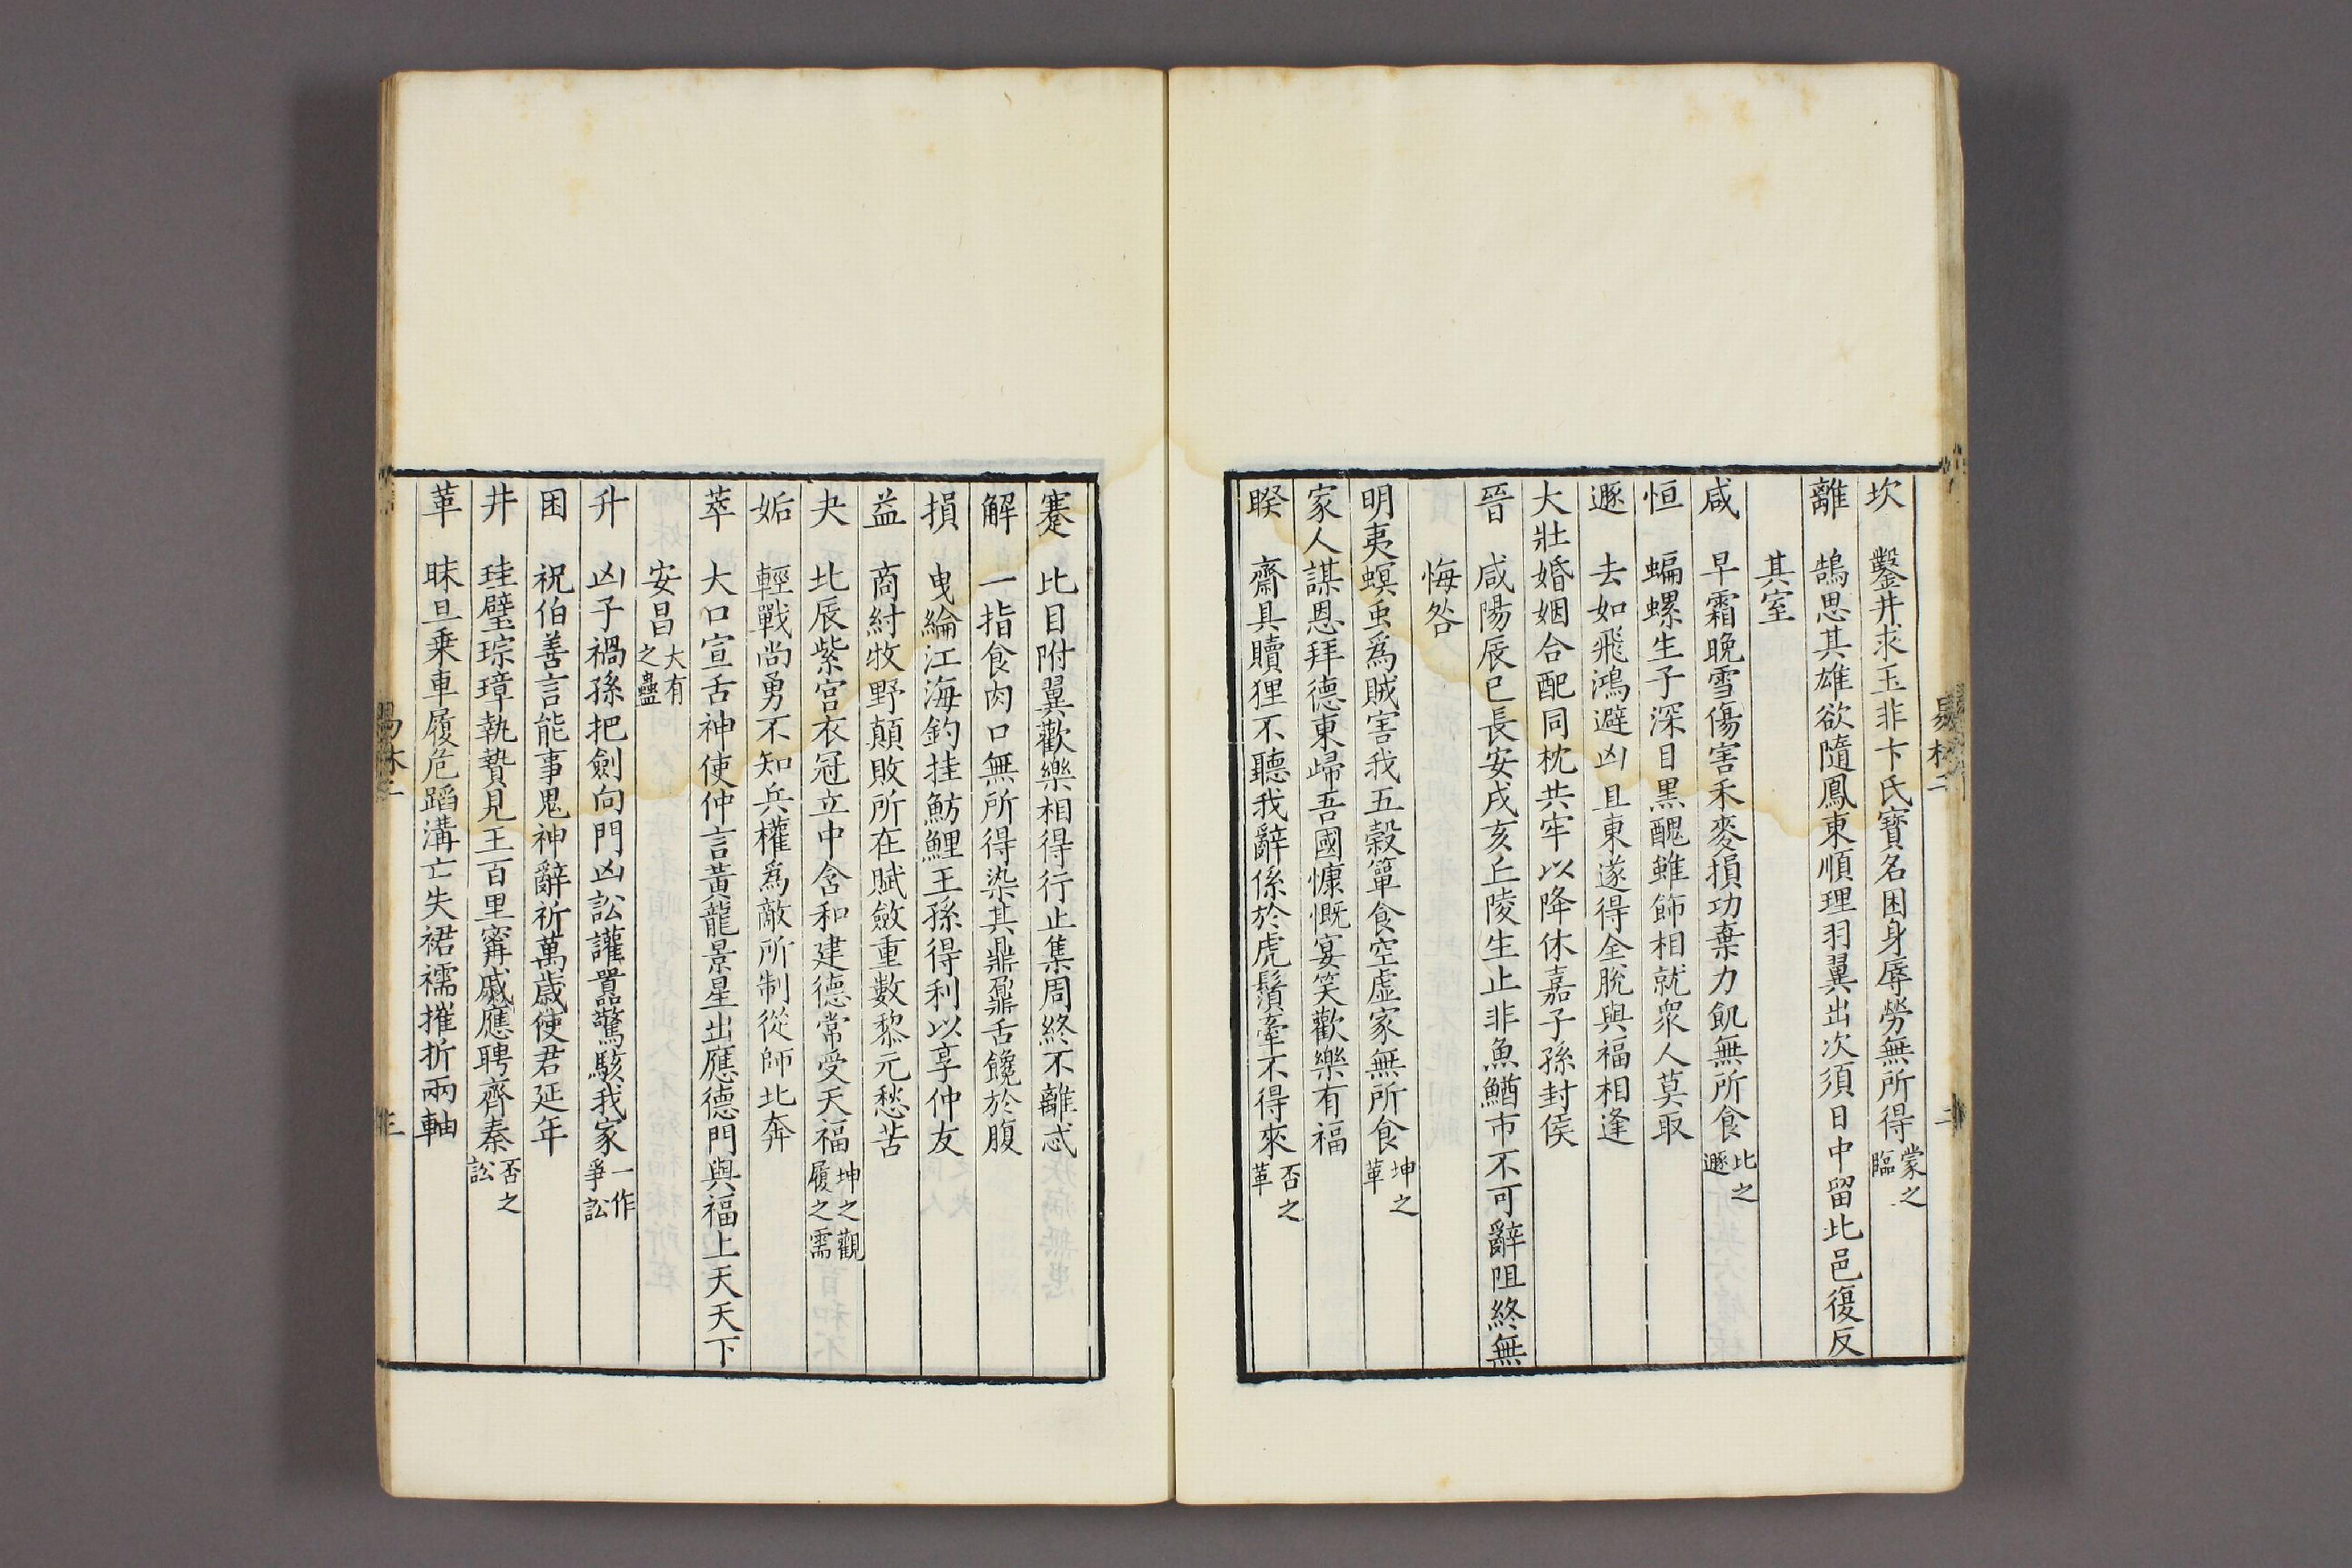 坎　鑿井求玉非卞氏寶名困身辱勞無所得蒙之臨
離　鵠思其雄欲隨鳳東順理羽翼出次須日中留北邑復反
其室
咸　早霜晚雪傷害禾麥損功棄力飢無所食比之遯
恒　蝙螺生子深目黑醜雖飾相就衆人莫取
遯　去如飛鴻避凶且東遂得全脫與福相逢
大壯婚姻合配同枕共牢以降休嘉子孫封侯
晉　咸陽辰巳長安戌亥丘陵生止非魚鰌市不可辭阻終無
悔咎
明夷螟虫爲賊害我五穀簞食空虛家無所食坤之革
家人謀恩拜德東歸吾國慷慨宴笑歡樂有福
睽　齋具贖狸不聽我辭係於虎鬚牽不得來否之革
蹇　比目附翼歡樂相得行止集周終不離忒
解　一指食肉口無所得染其鼎鼐舌饞於腹
損　曳綸江海釣挂魴鯉王孫得利以享仲友
益　商紂牧野顛敗所在賦斂重數黎元愁苦
夬　北辰紫宮衣冠立中含和建德常受天福坤之觀履之需
姤　輕戰尚勇不知兵權爲敵所制從師北奔
萃　大口宣舌神使仲言黃龍景星出應德門與福上天天下
安昌大有之蠱
升　凶子禍孫把劍向門凶訟讙嚚驚駭我家一作爭訟
困　祝伯善言能事鬼神辭祈萬歲使君延年
井　珪璧琮璋執贄見王百里甯戚應聘齊秦否之訟
革　昧旦乗車履危蹈溝亡失裙襦摧折兩軸